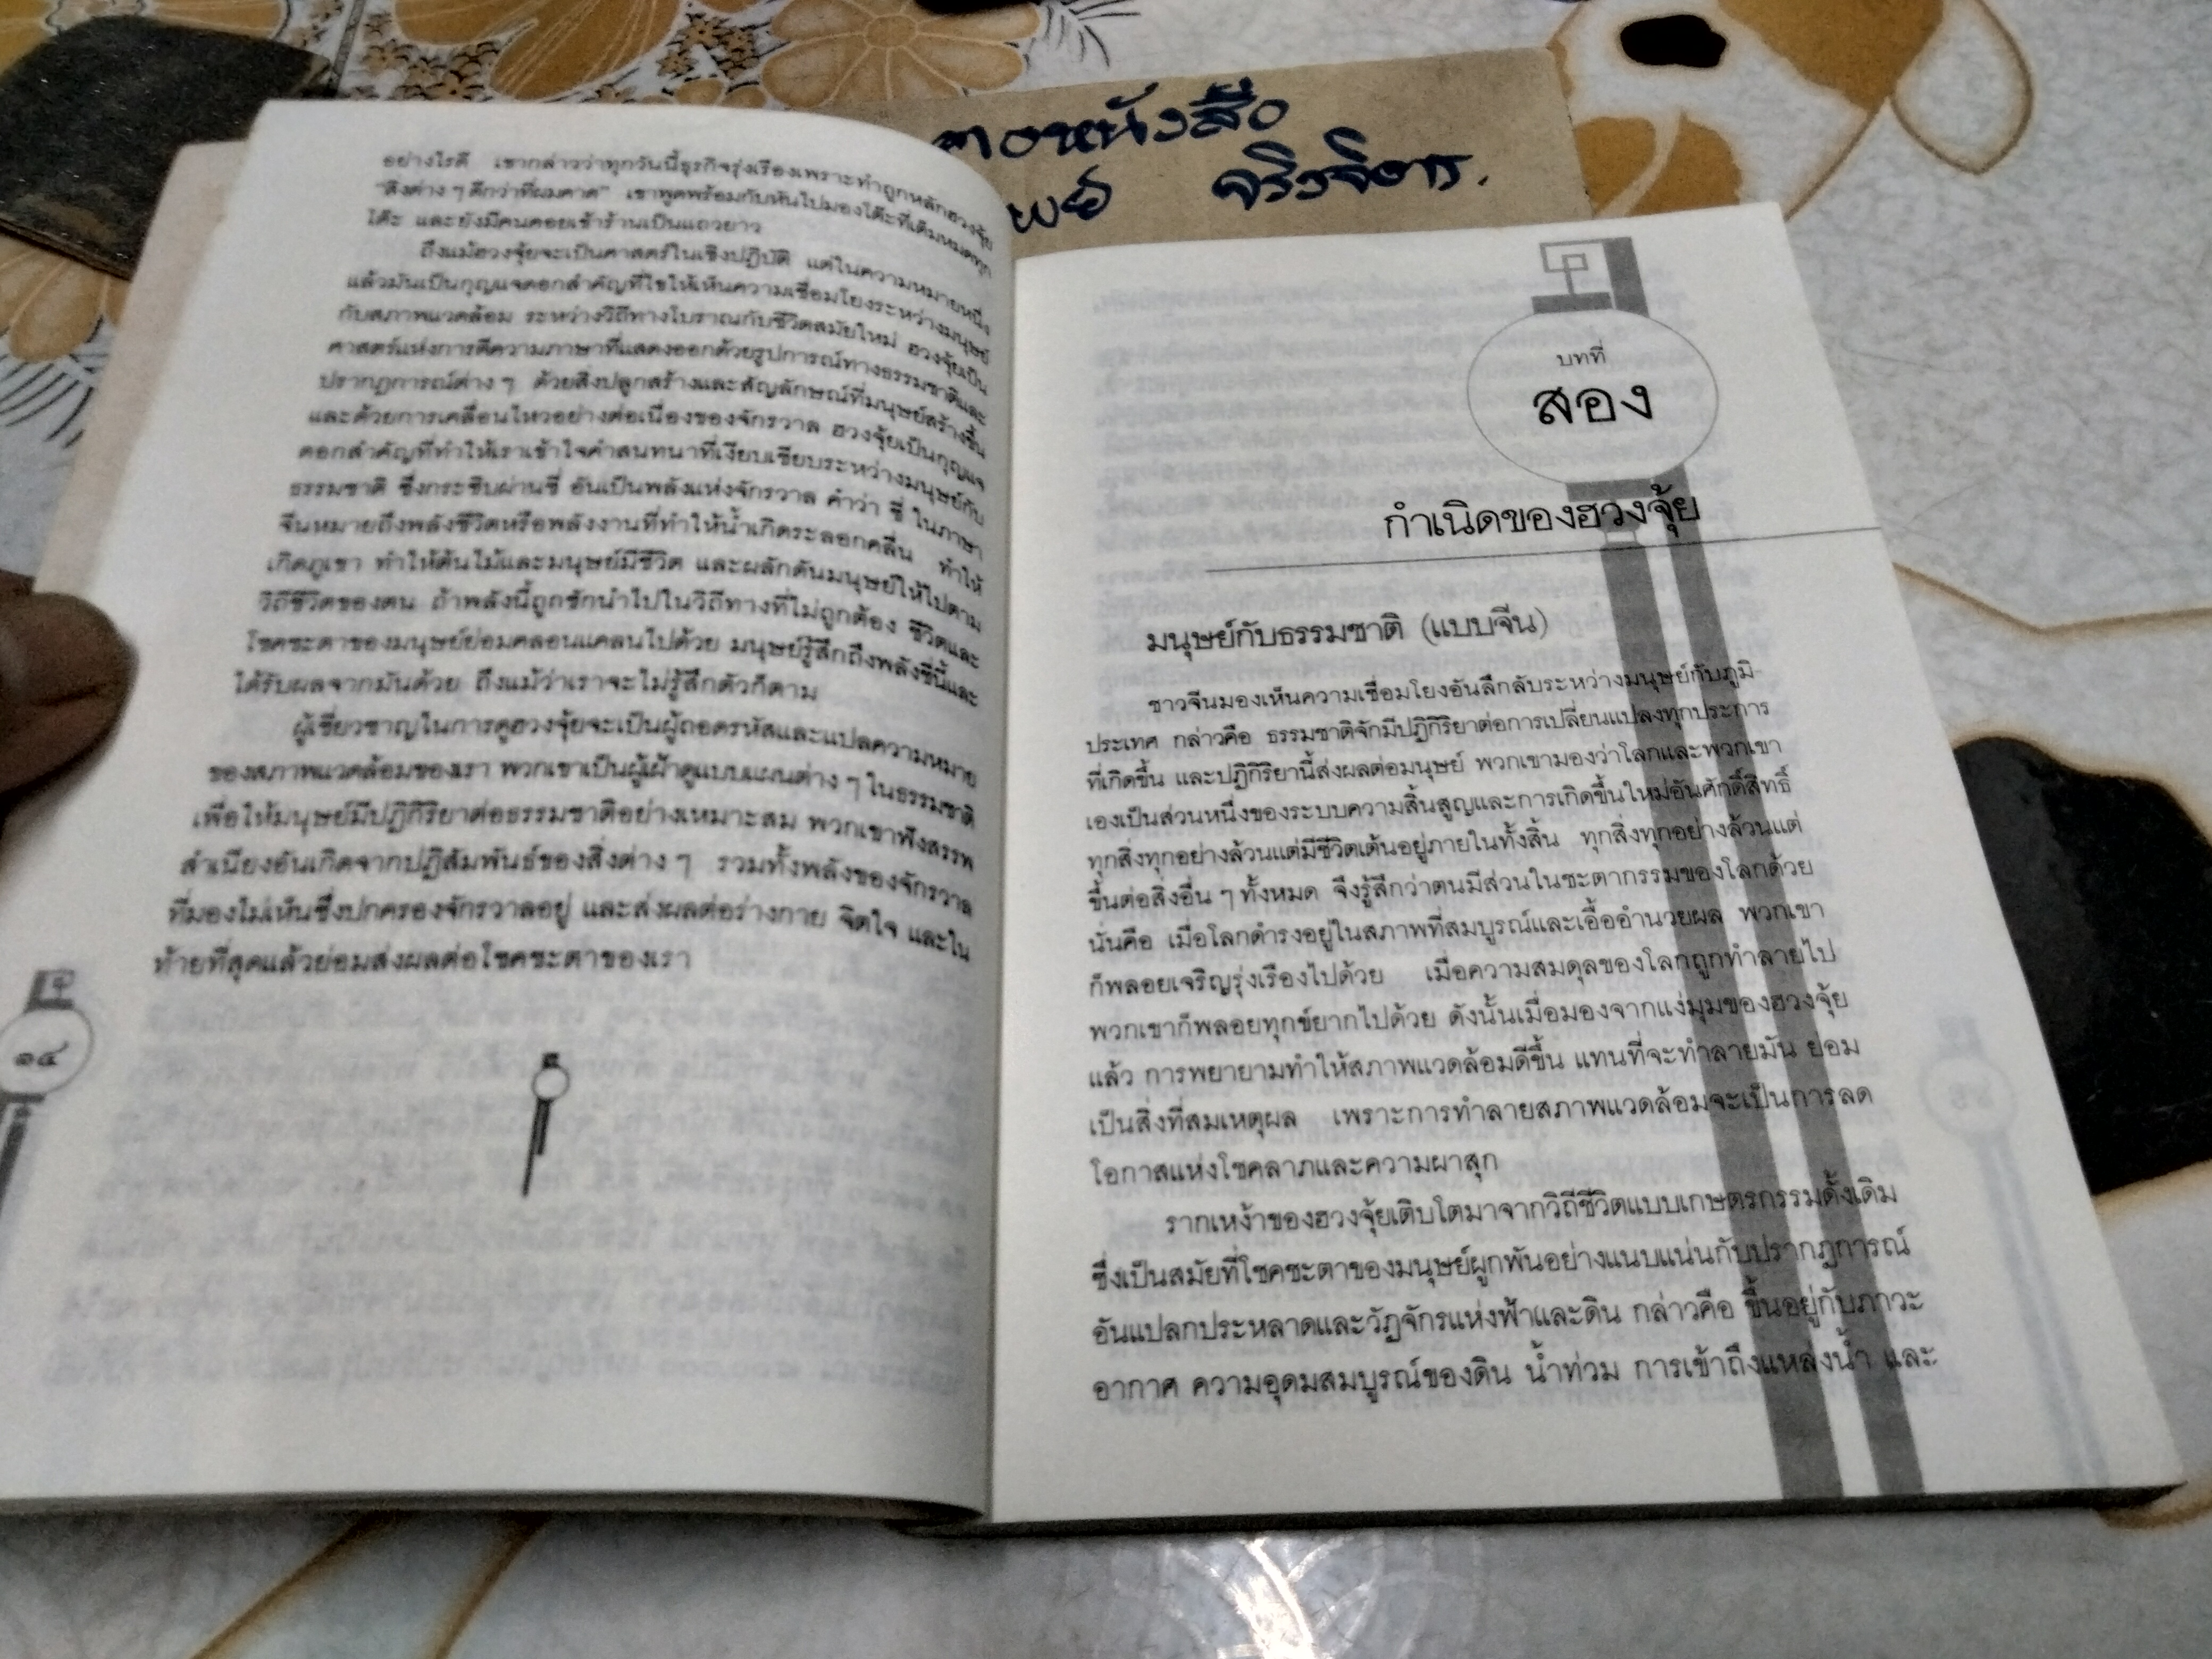 อย่างไรดี เขากล่าวว่าทุกวันนี้ธุรกิจรุ่งเรืองเพราะทำถูกหลักฮวงจุ้ย
"สิ่งต่าง ๆ ดีกว่าที่ผมคาด" เขาพูดพร้อมกับหันไปมองโต๊ะที่เต็มหมดทุก
โต๊ะ และยังมีคนคอยเข้าร้านเป็นแถวยาว
ถึงแม้ฮวงจุ้ยจะเป็นศาสตร์ในเชิงปฏิบัติ แต่ในความหมายหนึ่ง
แล้วมันเป็นกุญแจดอกสำคัญที่ไขให้เห็นความเชื่อมโยงระหว่างมนุษย์
กับสภาพแวดล้อม ระหว่างวิถีทางโบราณกับชีวิตสมัยใหม่ ฮวงจุ้ยเป็น
ศาสตร์แห่งการตีความภาษาที่แสดงออกด้วยรูปการณ์ทางธรรมชาติและ
ปรากฏการณ์ต่าง ๆ ด้วยสิ่งปลูกสร้างและสัญลักษณ์ที่มนุษย์สร้างขึ้น
และด้วยการเคลื่อนไหวอย่างต่อเนื่องของจักรวาล ฮวงจุ้ยเป็นกุญแจ
ดอกสำคัญที่ทำให้เราเข้าใจคำสนทนาที่เงียบเชียบระหว่างมนุษย์กับ
ธรรมชาติ ซึ่งกระซิบผ่านชี่ อันเป็นพลังแห่งจักรวาล คำว่า ชี่ ในภาษา
จีนหมายถึงพลังชีวิตหรือพลังงานที่ทำให้น้ำเกิดระลอกคลื่น ทำให้
เกิดภูเขา ทำให้ต้นไม้และมนุษย์มีชีวิต และผลักดันมนุษย์ให้ไปตาม
วิถีชีวิตของตน ถ้าพลังนี้ถูกชักนำไปในวิถีทางที่ไม่ถูกต้อง ชีวิตและ
โชคชะตาของมนุษย์ย่อมคลอนแคลนไปด้วย มนุษย์รู้สึกถึงพลังชี่นี้และ
ได้รับผลจากมันด้วย ถึงแม้ว่าเราจะไม่รู้สึกตัวก็ตาม
ผู้เชี่ยวชาญในการดูฮวงจุ้ยจะเป็นผู้ถอดรหัสและแปลความหมาย
ของสภาพแวดล้อมของเรา พวกเขาเป็นผู้เฝ้าดูแบบแผนต่าง ๆ ในธรรมชาติ
เพื่อให้มนุษย์มีปฏิกิริยาต่อธรรมชาติอย่างเหมาะสม พวกเขาฟังสรรพ
สำเนียงอันเกิดจากปฏิสัมพันธ์ของสิ่งต่าง ๆ รวมทั้งพลังของจักรวาล
ที่มองไม่เห็นซึ่งปกครองจักรวาลอยู่ และส่งผลต่อร่างกาย จิตใจ และใน
ท้ายที่สุดแล้วย่อมส่งผลต่อโชคชะตาของเรา
๑๔
หนังสือ
จริงจิตร.
บทที่
สอง
กำเนิดของฮวงจุ้ย
มนุษย์กับธรรมชาติ (แบบจีน)
ชาวจีนมองเห็นความเชื่อมโยงอันลึกลับระหว่างมนุษย์กับภูมิ-
ประเทศ กล่าวคือ ธรรมชาติจักมีปฏิกิริยาต่อการเปลี่ยนแปลงทุกประการ
ที่เกิดขึ้น และปฏิกิริยานี้ส่งผลต่อมนุษย์ พวกเขามองว่าโลกและพวกเขา
เองเป็นส่วนหนึ่งของระบบความสิ้นสูญและการเกิดขึ้นใหม่อันศักดิ์สิทธิ์
ทุกสิ่งทุกอย่างล้วนแต่มีชีวิตเต้นอยู่ภายในทั้งสิ้น ทุกสิ่งทุกอย่างล้วนแต่
ขึ้นต่อสิ่งอื่น ๆ ทั้งหมด จึงรู้สึกว่าตนมีส่วนในชะตากรรมของโลกด้วย
นั่นคือ เมื่อโลกดำรงอยู่ในสภาพที่สมบูรณ์และเอื้ออำนวยผล พวกเขา
ก็พลอยเจริญรุ่งเรืองไปด้วย เมื่อความสมดุลของโลกถูกทำลายไป
พวกเขาก็พลอยทุกข์ยากไปด้วย ดังนั้นเมื่อมองจากแง่มุมของฮวงจุ้ย
แล้ว การพยายามทำให้สภาพแวดล้อมดีขึ้น แทนที่จะทำลายมัน ย่อม
เป็นสิ่งที่สมเหตุผล เพราะการทำลายสภาพแวดล้อมจะเป็นการลด
โอกาสแห่งโชคลาภและความผาสุก
รากเหง้าของฮวงจุ้ยเติบโตมาจากวิถีชีวิตแบบเกษตรกรรมดั้งเดิม
ซึ่งเป็นสมัยที่โชคชะตาของมนุษย์ผูกพันอย่างแนบแน่นกับปรากฏการณ์
อันแปลกประหลาดและวัฏจักรแห่งฟ้าและดิน กล่าวคือ ขึ้นอยู่กับภาวะ
อากาศ ความอุดมสมบูรณ์ของดิน น้ำท่วม การเข้าถึงแหล่งน้ำ และ